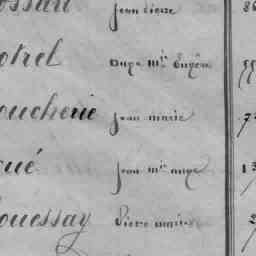 ossan jean Pierre 86
otrel Ange Mie Eugène
oucherie jean marie 7
oué jean Mie ange 13
ouessay Pierre marie 2